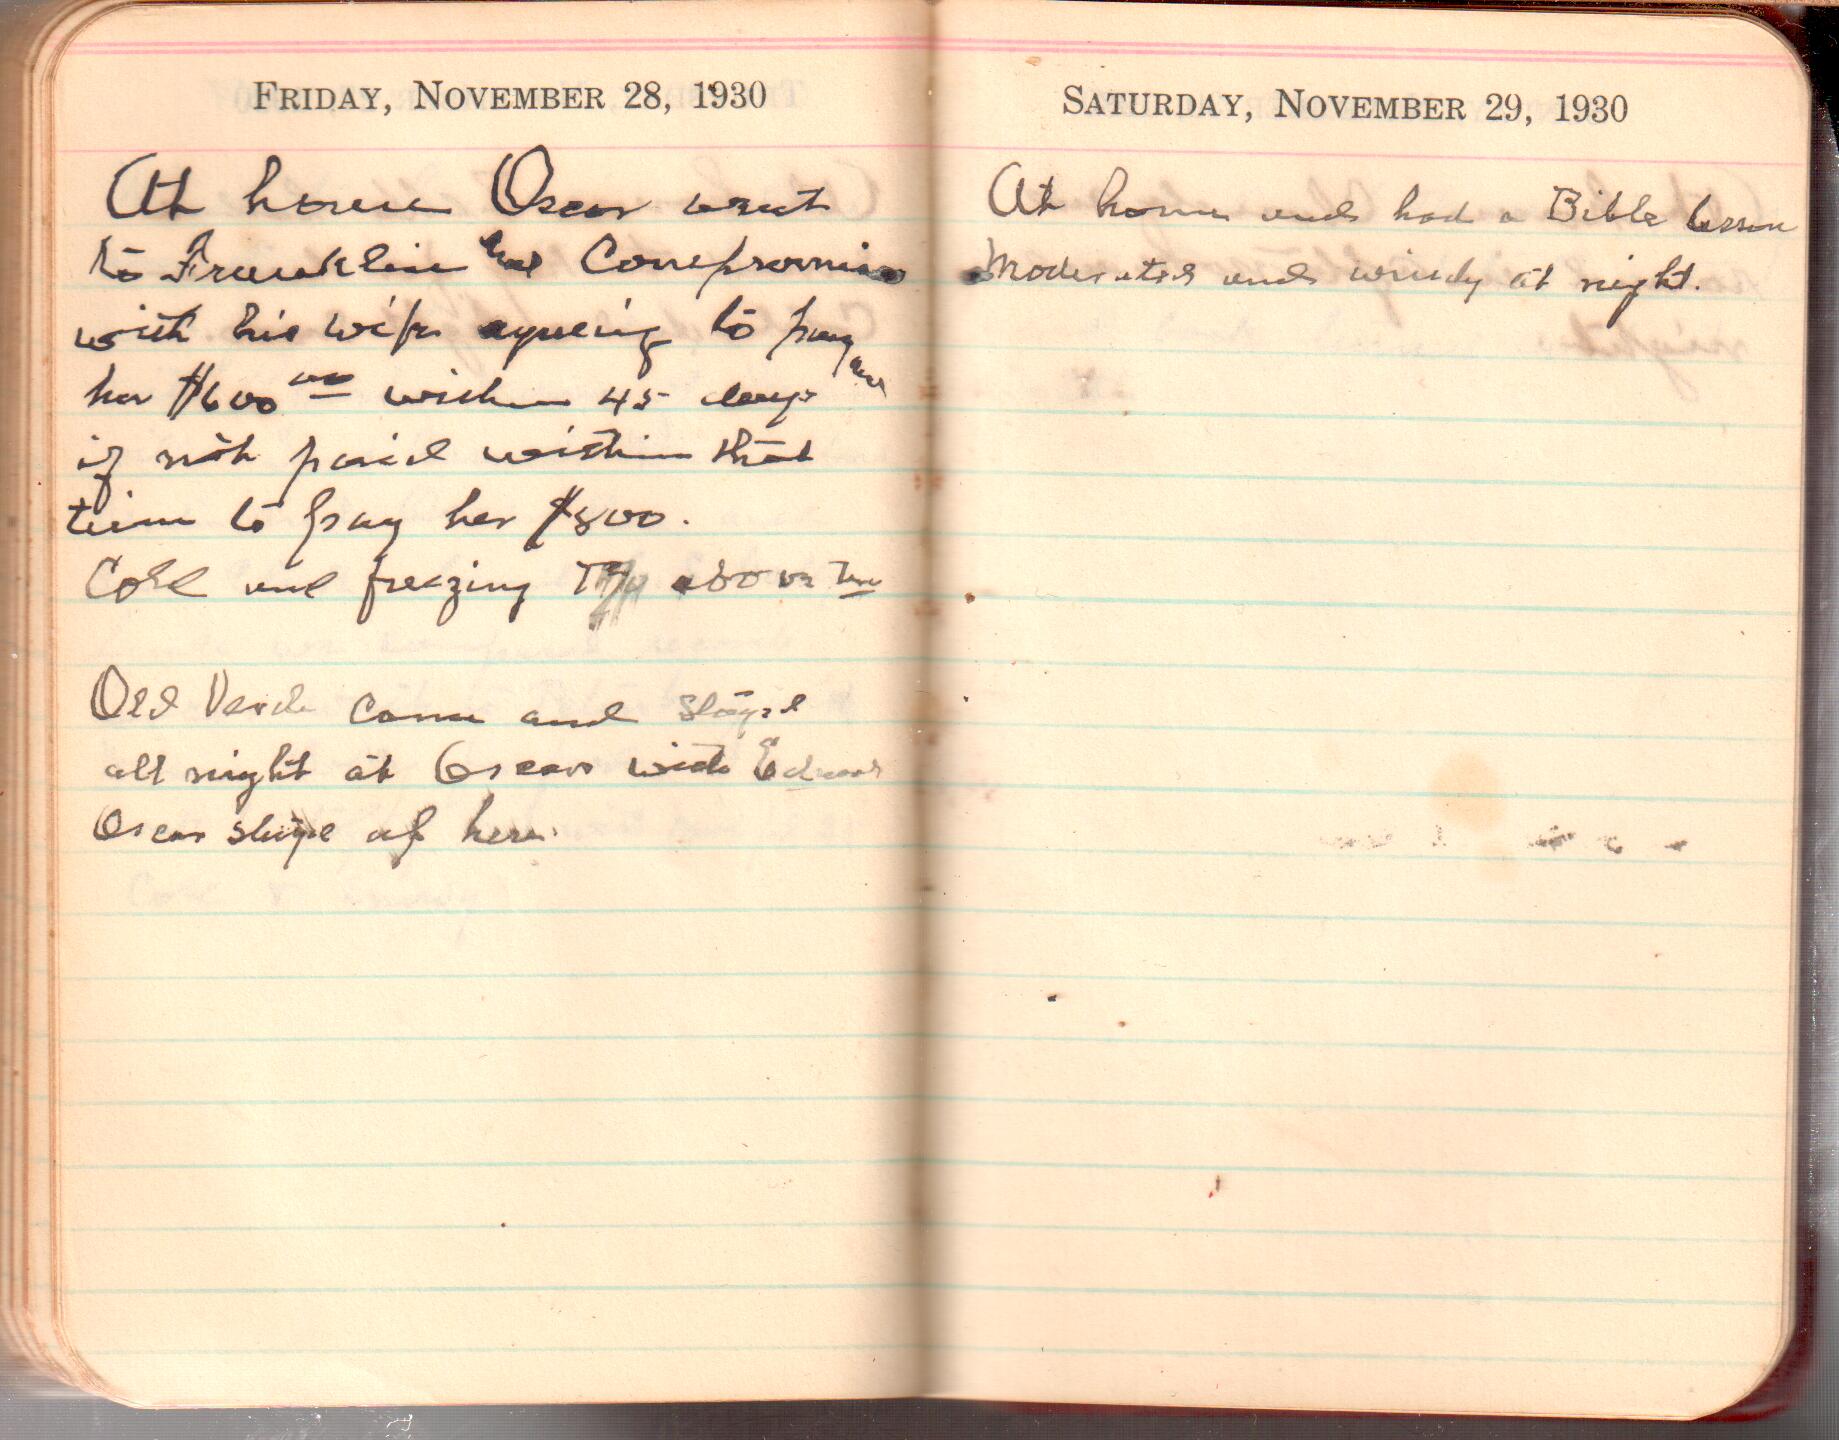 FRIDAY, NOVEMBER 28, 1930
At home Oscar went
to Franklin and Compromise
with his wife agreeing to pay
her $600 00 within 45 days and
if not paid within that
time to pay her $800.
Cold and freezing above
Old came and stayed
all night at Oscars with
Oscar slept up here.
SATURDAY, NOVEMBER 29, 1930
At home and had a Bible lesson
Moderated and windy at night.